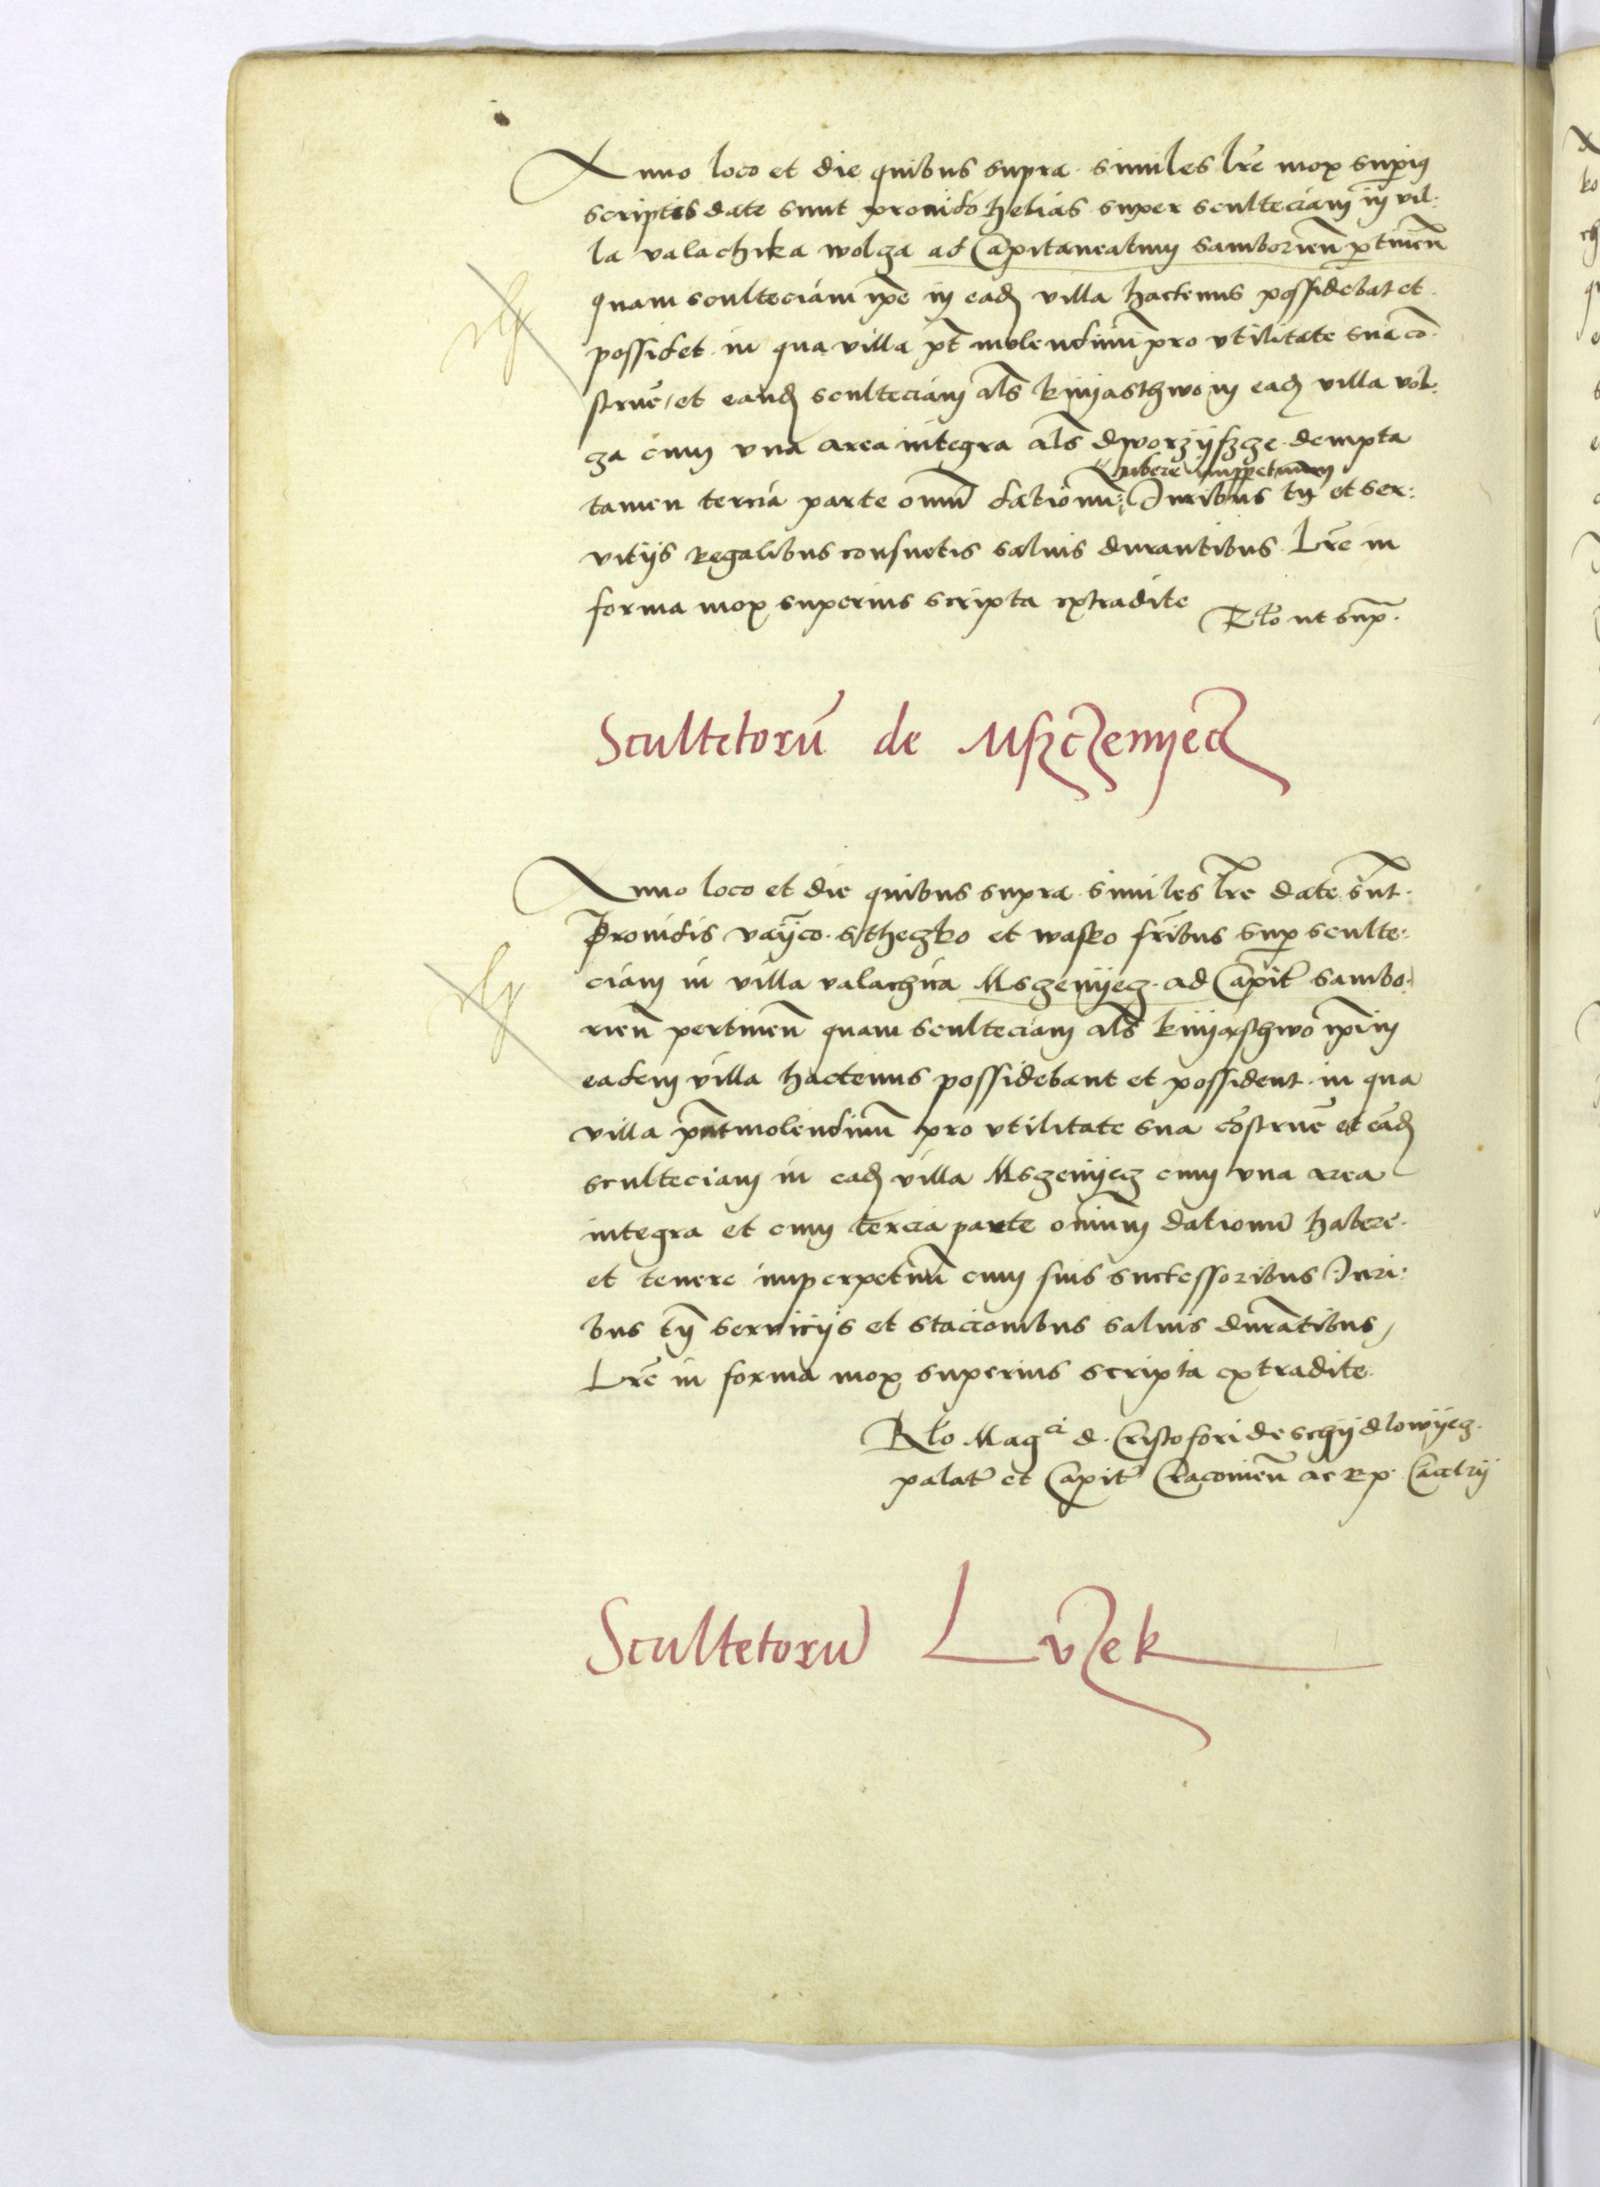 Anno loco et die quibus supra similes lre mox supius
scriptis date sunt prouido helias super sculteciam in vil:
la valachika wolcza ad Capitaneatum samborien ptinen
quam sculteciam ipe in ead villa hactenus possidebat et
possidet in qua villa pt molendinu pro vtilitate sua co
strue et eand sculteciam als knyasthwo in ead villa vol
cza cum vna area integra als dworzyfzcze dempta
habere imppetuum
tamen tercia parte omniu dationu: Iuribus tn et ser:
vitijs Regalibus consuetis saluis durantibus Lre in
forma mox superius scripta extradite
Rlo ut sup
Scultetoru de Mfzczenyecz
Anno loco et die quibus supra similes lre date sunt
Prouidis vayco stheczko et wasko fribus sup sculte:
ciam in villa valachica Msczenyecz ad Capit sambo
rien pertinen quam sculteciam als knyasthwo ipi in
eadem villa hactenus possidebant et possident in qua
villa pnt molendinu pro vtilitate sua costrue et eand
sculteciam in ead villa Msczenyecz cum vna area
integra et cum tercia parte omnium dationu habere
et tenere imperpetuu cum suis successoribus Iuri:
bus tn seruicijs et stacionibus saluis durantibus
Lre in forma mox superius scripta extradite
Rlo Magci d Cristofori de schydlowyecz
palat et Capit Cracouien ac Rp Cacelrij
Scultetoru Luzek